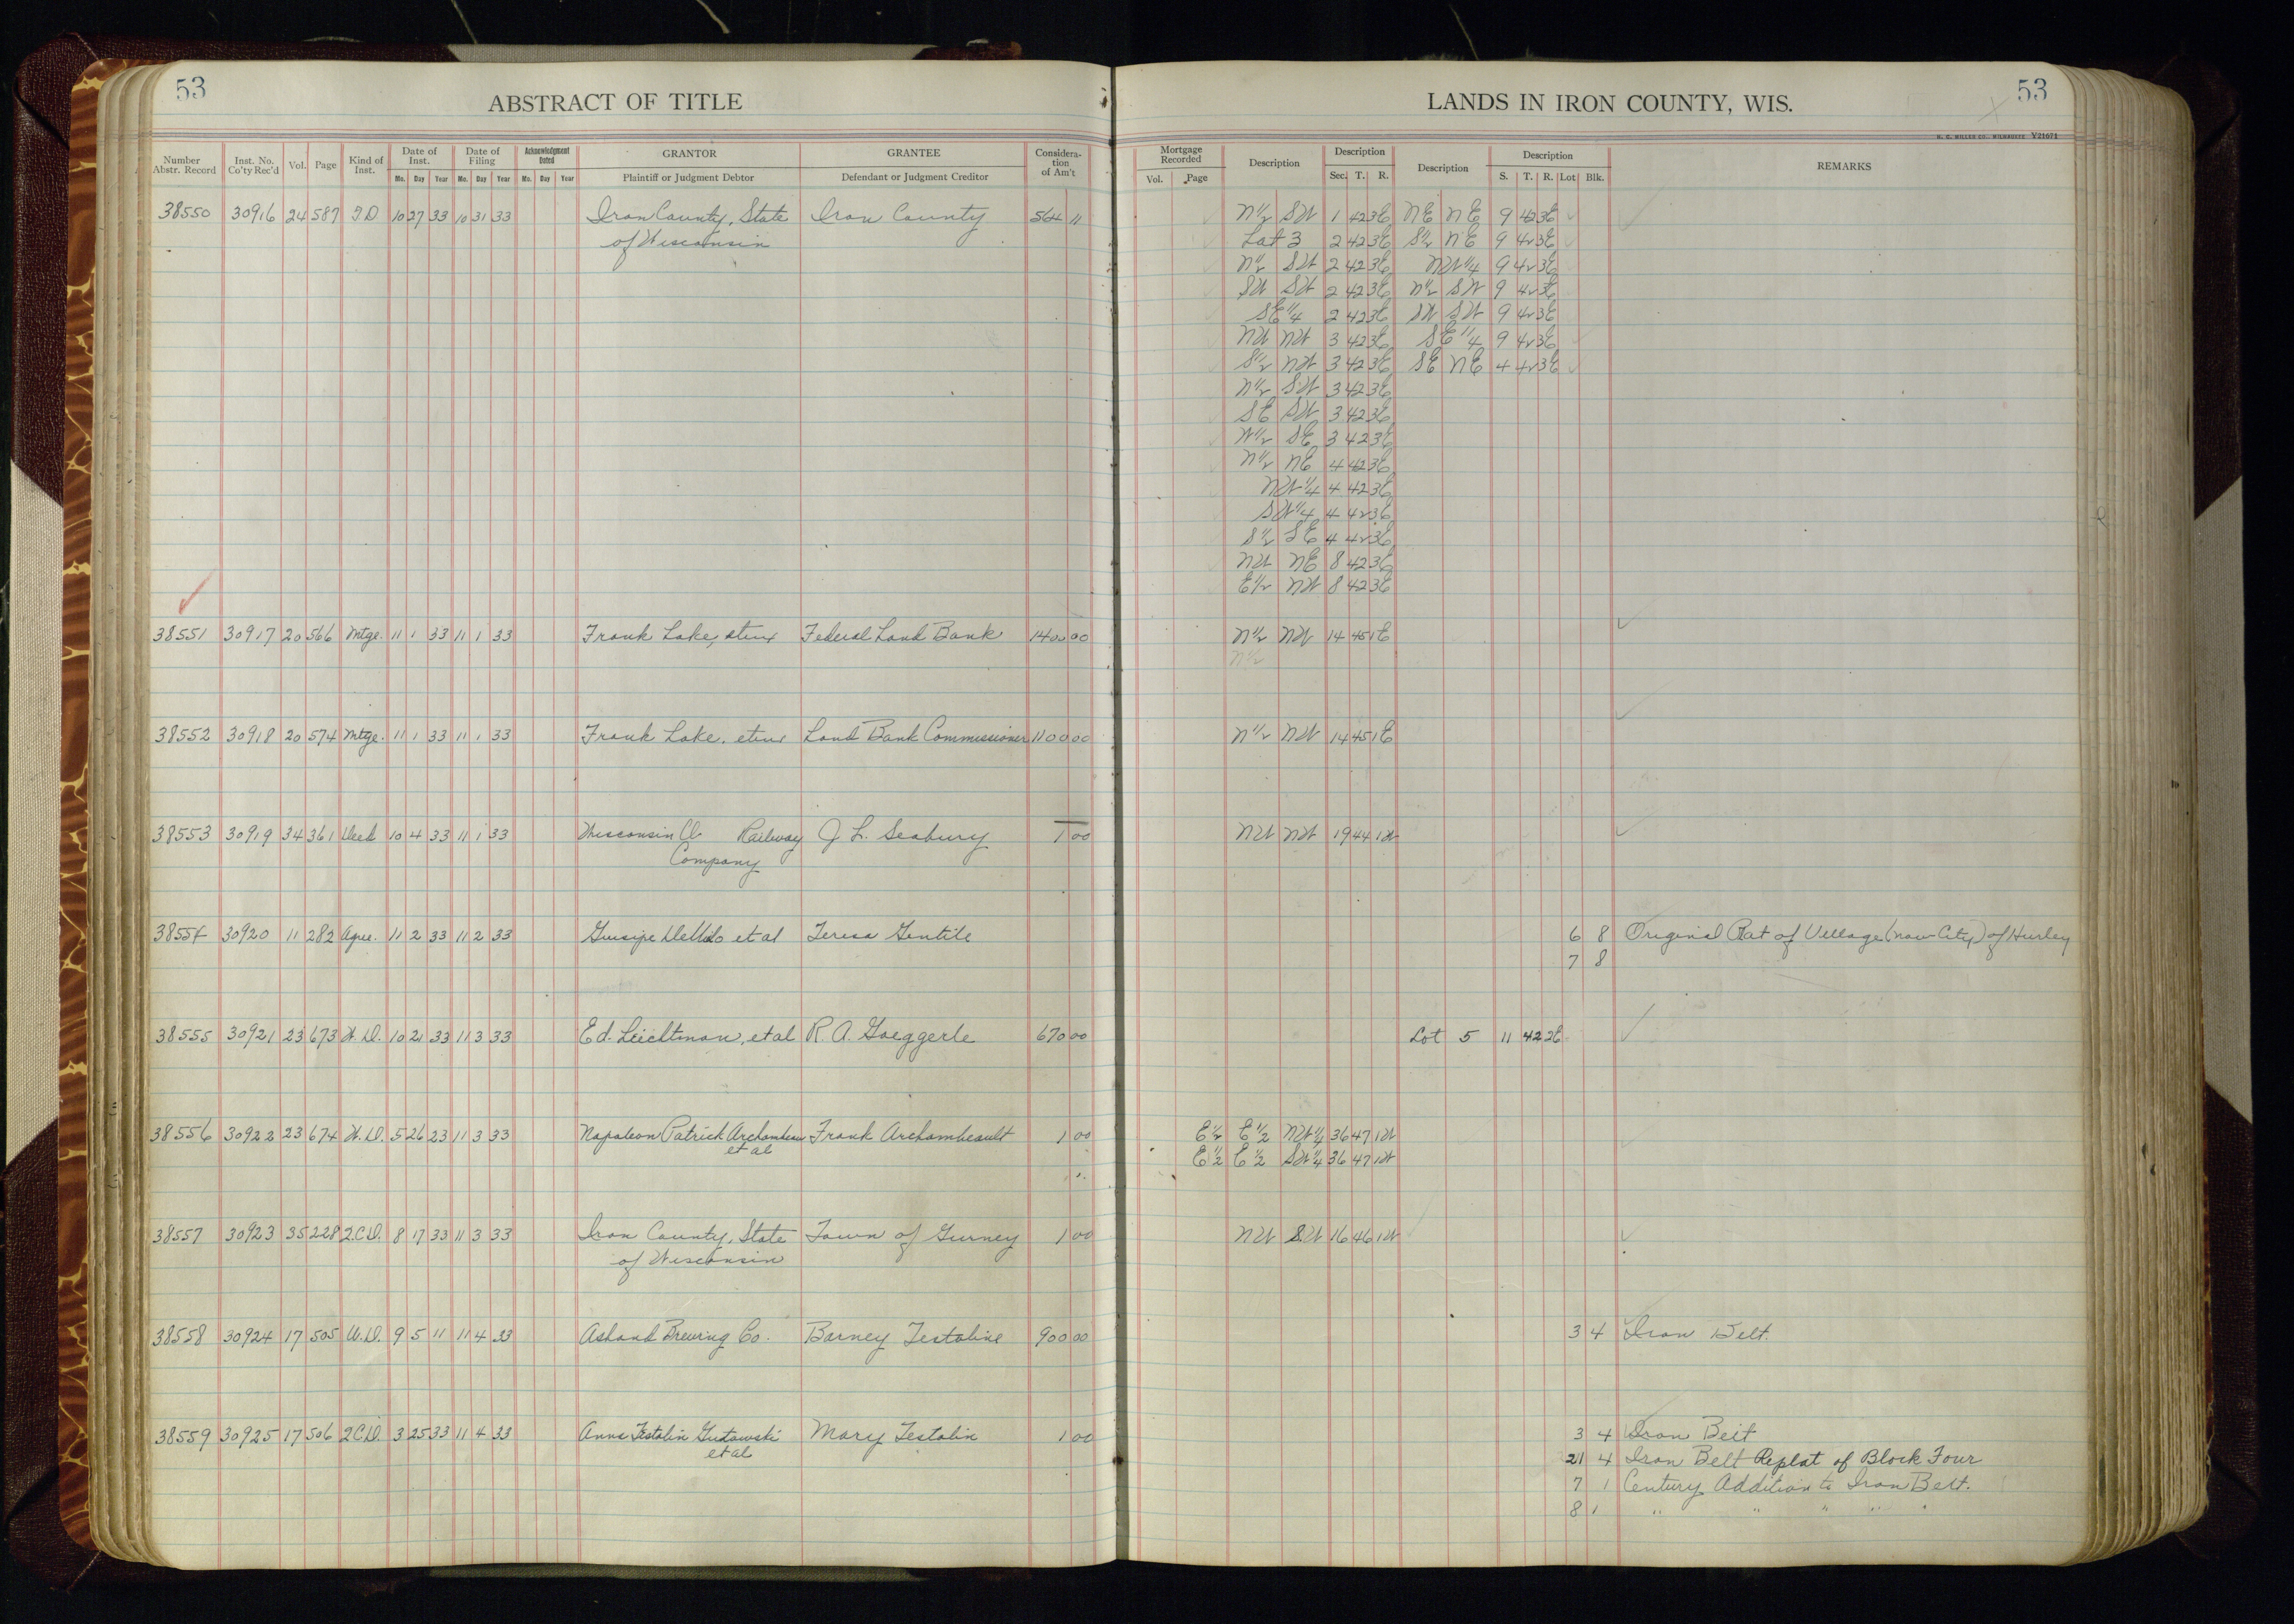 53
ABSTRACT OF TITLE
LANDS IN IRON COUNTY, WIS.
53
H. C. MILLER CO., MILWAUKEE Y21671
Number Abstr. Record Inst. No. Co'ty Rec'd Vol. Page Kind of Inst. Date of Inst. Mo. Day Year Date of Filing Mo. Day Year Acknowledgment Dated Mo. Day Year GRANTOR Plaintiff or Judgment Debtor GRANTEE Defendant or Judgment Creditor Considera-tion of Am't
Mortgage Recorded Vol. Page Description Description Sec. T. R. Description Description S. T. R. Lot Blk. REMARKS
38550 30916 24 587 T.D 10 27 33 10 31 33 Iron County, State Iron County 564 11 N1/2 SW 1 42 3E NE NE 9 42 3E
of Wisconsin Lot 3 2 42 3E S1/2 NE 9 42 3E
N1/2 SW 2 42 3E NW1/4 9 42 3E
SW SW 2 42 3E N1/2 SW 9 42 3E
SE1/4 2 42 3E SW SW 9 42 3E
NW NW 3 42 3E SE1/4 9 42 3E
S1/2 NW 3 42 3E SE NE 4 42 3E
N1/2 SW 3 42 3E
SE SW 3 42 3E
W1/2 SE 3 42 3E
N1/2 NE 4 42 3E
NW1/4 4 42 3E
SW1/4 4 42 3E
S1/2 SE 4 42 3E
NW NE 8 42 3E
E1/2 NW 8 42 3E
38551 30917 20 566 Mtge. 11 1 33 11 1 33 Frank Lake, etux Federal Land Bank 1400 00 N1/2 NW 14 45 1E
N1/2
38552 30918 20 574 Mtge. 11 1 33 11 1 33 Frank Lake, etux Land Bank Commissioner 1100 00 N1/2 NW 14 45 1E
38553 30919 34 361 Deed 10 4 33 11 1 33 Wisconsin Railway J. L. Seabury 1 00 NW NW 19 44 1W
Company
38554 30920 11 282 Agree. 11 2 33 11 2 33 et al Teresa Gentile 6 8 Original Plat of Village (now City) of Hurley
7 8
38555 30921 23 673 W.D. 10 21 33 11 3 33 Ed. Leichtman, et al R. A. Goeggerle 670 00 Lot 5 11 42 2E
38556 30922 23 674 W.D. 5 26 23 11 3 33 Napoleon Patrick Archambeau Frank Archambeault 1 00 E1/2 E1/2 NW1/4 36 47 1W
et al E1/2 E1/2 SW1/4 36 47 1W
38557 30923 35 228 2.C.D. 8 17 33 11 3 33 Iron County, State Town of Gurney 1 00 NW SW 16 46 1W
of Wisconsin
38558 30924 17 505 W.D. 9 5 11 11 4 33 Ashand Brewing Co. Barney Testoline 900 00 3 4 Iron Belt.
38559 30925 17 506 2C.D. 3 25 33 11 4 33 Anna Testolin Gutowski Mary Testolin 1 00 3 4 Iron Belt
et al 21 4 Iron Belt Replat of Block Four
7 1 Century Addition to Iron Belt.
8 1 " " " " "